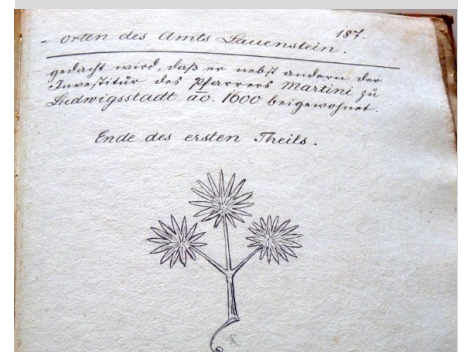 187.
- orten des Amts Lauenstein.
gedacht wird, daß er nebst andern der
Investitur des Pfarrers Martini zu
Ludwigsstadt ao. 1600 beigewohnet.
Ende des ersten Theils.